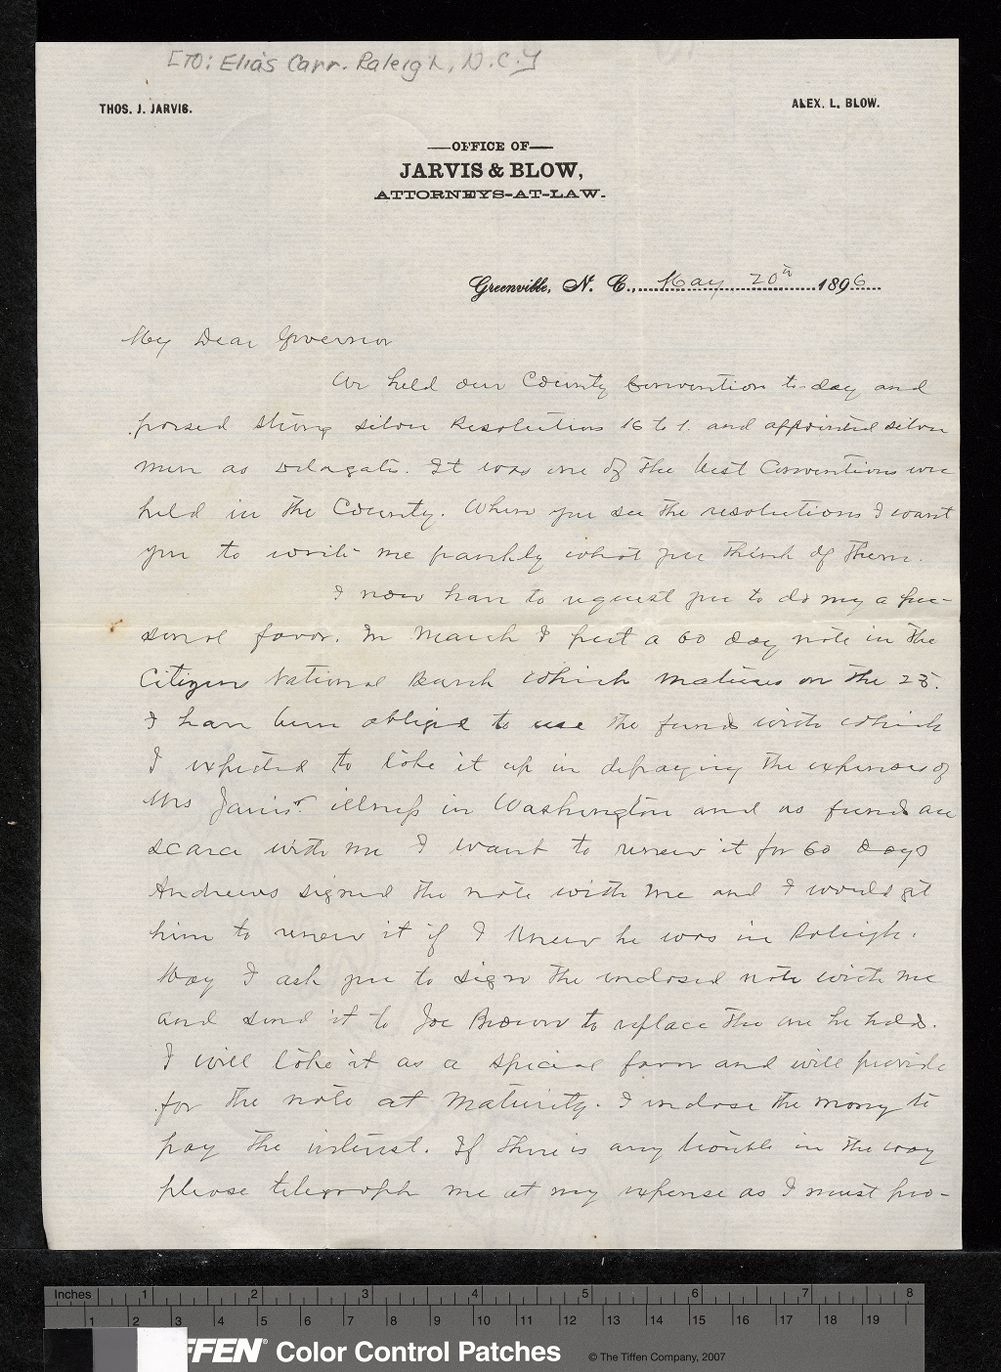 [TO: Elias Carr. Raleigh, N.C.]
THOS. J. JARVIS.
ALEX. L. BLOW.
OFFICE OF
JARVIS & BLOW,
ATTORNEYS-AT-LAW.
Greenville, N. C., May 20th 1896
My Dear Governor
We held our County Convention to-day and
passed strong silver Resolutions 16 to 1. and appointed silver
men as delegates. It was one of the best Conventions ever
held in the County. When you see the resolutions I want
you to write me frankly what you think of them.
I now have to request you to do my a per-
sonal favor. In March I put a 60 day note in the
Citizens National Bank which matures on the 25.
I have been obliged to use the funds with which
I expected to take it up in defraying the expenses of
Mrs Jarvis' illness in Washington and as funds are
scarce with me I want to renew it for 60 days
Andrews signed the note with me and I would get
him to renew it if I knew he was in Raleigh.
May I ask you to sign the enclosed note with me
and send it to Joe Brown to replace the one he holds.
I will take it as a special favor and will provide
for the note at maturity. I inclose the money to
pay the interest. If there is any trouble in the way
please telegraph me at my expense as I must pro-
Inches 1 2 3 4 5 6 7 8
1 2 3 4 5 6 7 8 9 10 11 12 13 14 15 16 17 18 19
FFEN® Color Control Patches © The Tiffen Company, 2007